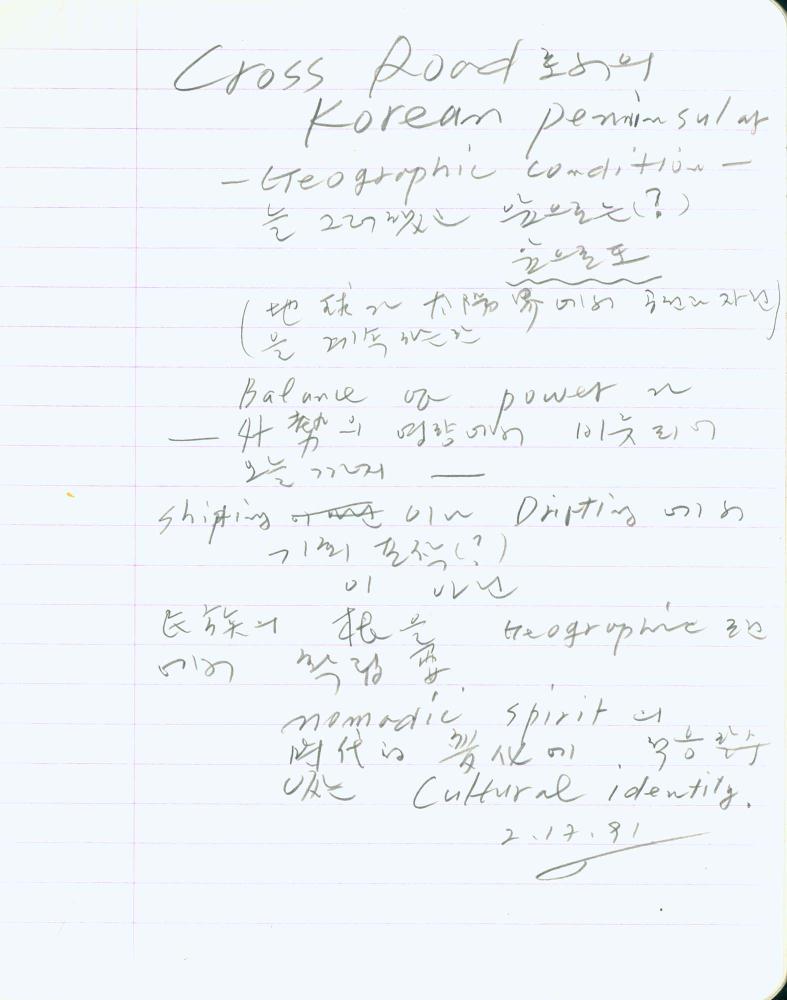 Cross Road로서의
Korean penninsular
— Geographic condition —
늘 그러했고 앞으로는(?)
앞으로도
(地球가 太陽界에서 공전과 자전
을 계속하는한)
Balance of power 가
— 外勢의 영향에서 이루어
오늘까지 —
Shifting 이나 Drifting 에서
기회 포착(?)
이 아닌
民族의 根을 Geographic 조건
에서 확립 할
nomadic spirit 의
時代的 變化에 적응할수
있는 Cultural identity.
2.17.91